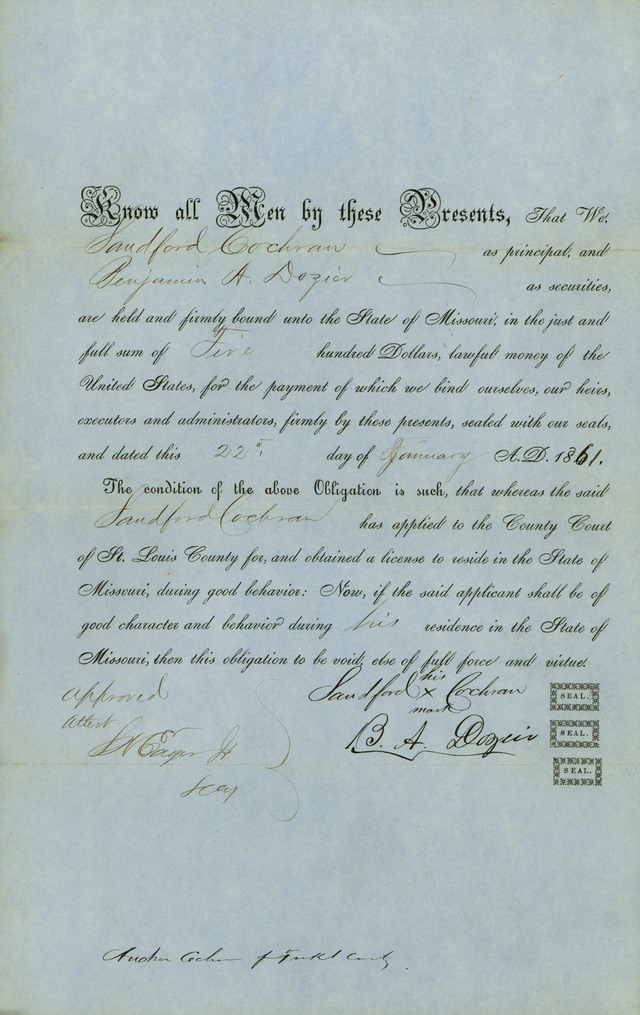 Know all Men by these Presents, That We,
Sandford Cochran as principal, and
Benjamin A. Dozier as securities,
are held and firmly bound unto the State of Missouri, in the just and
full sum of Five hundred Dollars, lawful money of the
United States, for the payment of which we bind ourselves, our heirs,
executors and administrators, firmly by these presents, sealed with our seals,
and dated this 22d day of January A.D. 1861.
The condition of the above Obligation is such, that whereas the said
Sandford Cochran has applied to the County Court
of St. Louis County for, and obtained a license to reside in the State of
Missouri, during good behavior: Now, if the said applicant shall be of
good character and behavior during his residence in the State of
Missouri, then this obligation to be void, else of full force and virtue.
approved
his
Sandford x Cochran SEAL.
mark
Attest
B. A. Dozier SEAL.
Eager Jr
SEAL.